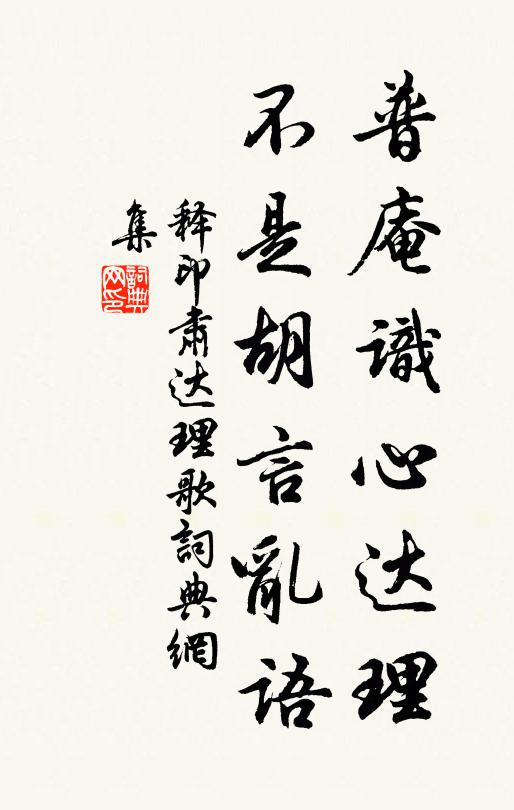 普庵識心达理
不是胡言亂語
释印肃达理歌詞典網
集
詞典
网印